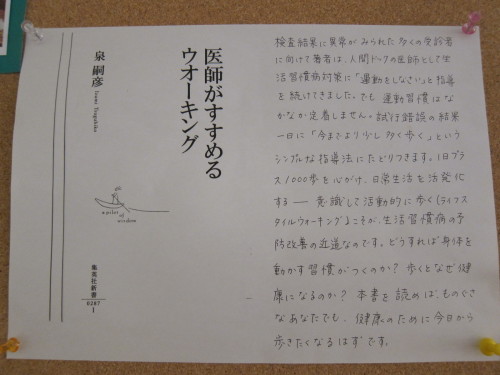 医師がすすめる
ウオーキング
泉 嗣彦
Izumi Tsuguhiko
a pilot of
wisdom
集英社新書
0287
I
検査結果に異常がみられた多くの受診者
に向けて著者は、人間ドックの医師として生
活習慣病対策に「運動をしなさい」と指導
を続けてきました。でも運動習慣はな
かなか定着しません。試行錯誤の結果
一日に「今までより少し多く歩く」という
シンプルな指導法にたどりつきます。1日プラ
ス1000歩を心がけ、日常生活を活発化
する── 意識して活動的に歩く(ライフス
タイルウオーキング)こそが、生活習慣病の予
防改善の近道なのです。どうすれば身体を
動かす習慣がつくのか? 歩くとなぜ健
康になるのか? 本書を読めば、ものぐさ
なあなたでも、健康のために今日から
歩きたくなるはずです。